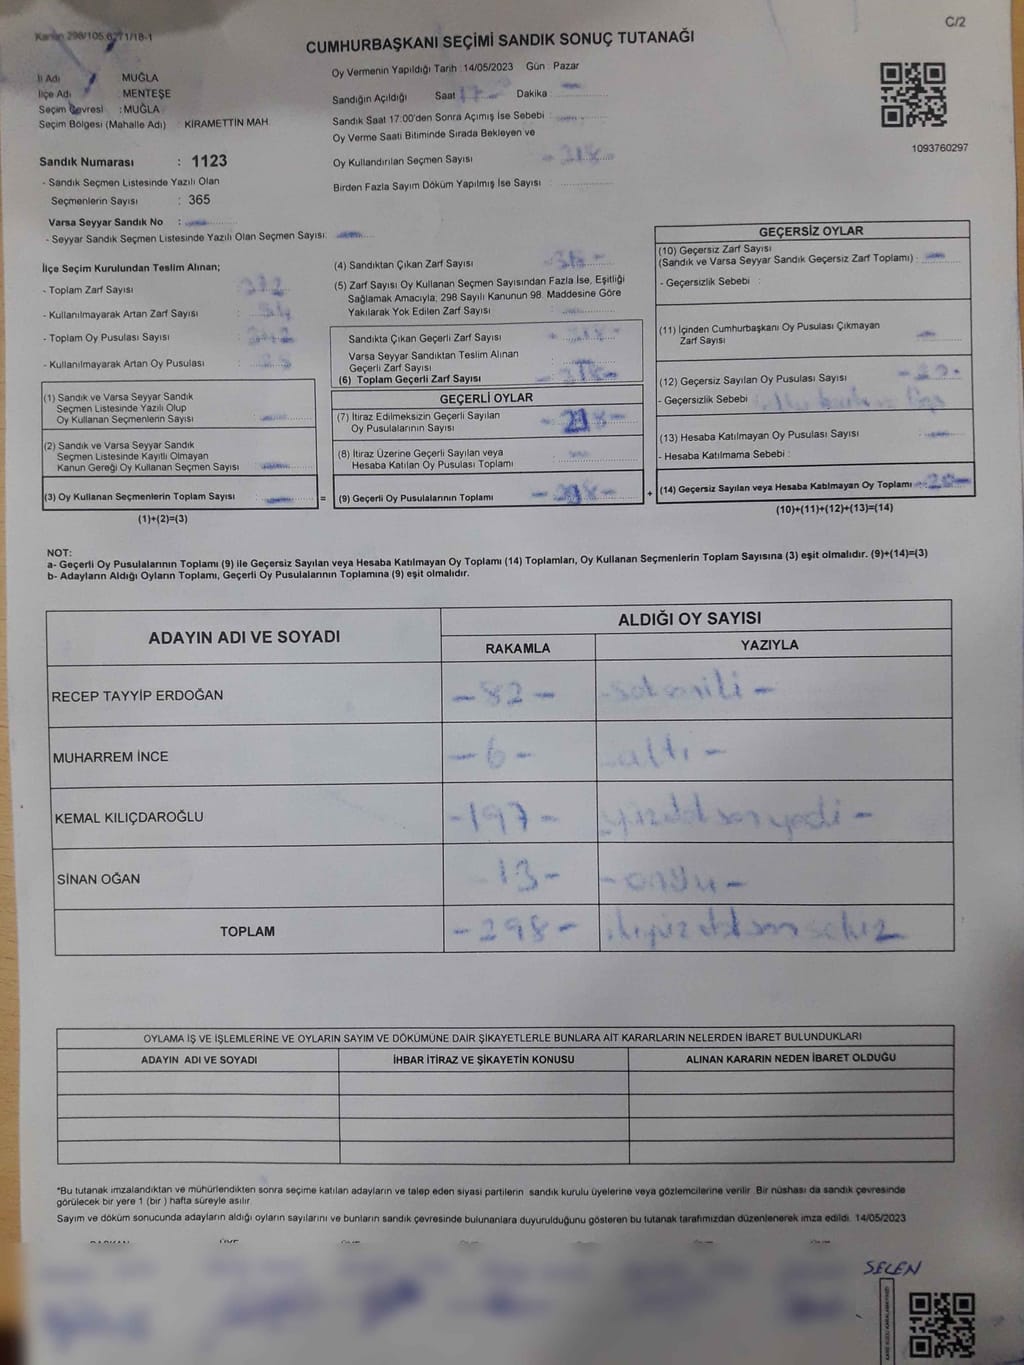 C/2
Kanun 298/105,6271/18-1
CUMHURBAŞKANI SEÇİMİ SANDIK SONUÇ TUTANAĞI
İl Adı MUĞLA
İlçe Adı : MENTEŞE
Seçim Çevresi : MUĞLA
Seçim Bölgesi (Mahalle Adı) : KİRAMETTİN MAH
Sandık Numarası : 1123
- Sandık Seçmen Listesinde Yazılı Olan
Seçmenlerin Sayısı : 365
Varsa Seyyar Sandık No :
- Seyyar Sandık Seçmen Listesinde Yazılı Olan Seçmen Sayısı:
Oy Vermenin Yapıldığı Tarih :14/05/2023 Gün : Pazar
Sandığın Açıldığı Saat 17 Dakika :
Sandık Saat 17:00'den Sonra Açımış İse Sebebi :
Oy Verme Saati Bitiminde Sırada Bekleyen ve
Oy Kullandırılan Seçmen Sayısı
Birden Fazla Sayım Döküm Yapılmış İse Sayısı :
1093760297
İlçe Seçim Kurulundan Teslim Alınan;
- Toplam Zarf Sayısı :
- Kullanılmayarak Artan Zarf Sayısı :
- Toplam Oy Pusulası Sayısı :
- Kullanılmayarak Artan Oy Pusulası :
(1) Sandık ve Varsa Seyyar Sandık
Seçmen Listesinde Yazılı Olup
Oy Kullanan Seçmenlerin Sayısı :
(2) Sandık ve Varsa Seyyar Sandık
Seçmen Listesinde Kayıtlı Olmayan
Kanun Gereği Oy Kullanan Seçmen Sayısı :
(3) Oy Kullanan Seçmenlerin Toplam Sayısı :
(1)+(2)=(3)
(4) Sandıktan Çıkan Zarf Sayısı
(5) Zarf Sayısı Oy Kullanan Seçmen Sayısından Fazla İse, Eşitliği
Sağlamak Amacıyla; 298 Sayılı Kanunun 98. Maddesine Göre
Yakılarak Yok Edilen Zarf Sayısı :
Sandıkta Çıkan Geçerli Zarf Sayısı
Varsa Seyyar Sandıktan Teslim Alınan
Geçerli Zarf Sayısı :
(6) Toplam Geçerli Zarf Sayısı
GEÇERLİ OYLAR
(7) İtiraz Edilmeksizin Geçerli Sayılan
Oy Pusulalarının Sayısı :
(8) İtiraz Üzerine Geçerli Sayılan veya
Hesaba Katılan Oy Pusulası Toplamı
= (9) Geçerli Oy Pusulalarının Toplamı - 298 -
GEÇERSİZ OYLAR
(10) Geçersiz Zarf Sayısı
(Sandık ve Varsa Seyyar Sandık Geçersiz Zarf Toplamı) :
- Geçersizlik Sebebi :
(11) İçinden Cumhurbaşkanı Oy Pusulası Çıkmayan
Zarf Sayısı
(12) Geçersiz Sayılan Oy Pusulası Sayısı - 20 -
- Geçersizlik Sebebi
(13) Hesaba Katılmayan Oy Pusulası Sayısı
- Hesaba Katılmama Sebebi :
+ (14) Geçersiz Sayılan veya Hesaba Katılmayan Oy Toplamı - 20 -
(10)+(11)+(12)+(13)=(14)
NOT:
a- Geçerli Oy Pusulalarının Toplamı (9) ile Geçersiz Sayılan veya Hesaba Katılmayan Oy Toplamı (14) Toplamları, Oy Kullanan Seçmenlerin Toplam Sayısına (3) eşit olmalıdır. (9)+(14)=(3)
b- Adayların Aldığı Oyların Toplamı, Geçerli Oy Pusulalarının Toplamına (9) eşit olmalıdır.
ADAYIN ADI VE SOYADI ALDIĞI OY SAYISI
RAKAMLA YAZIYLA
RECEP TAYYİP ERDOĞAN - 82 - - seksen iki -
MUHARREM İNCE - 6 - altı -
KEMAL KILIÇDAROĞLU - 197 - yüzdoksanyedi -
SİNAN OĞAN - 13 - - onüç -
TOPLAM - 298 - ikiyüzdoksansekiz
OYLAMA İŞ VE İŞLEMLERİNE VE OYLARIN SAYIM VE DÖKÜMÜNE DAİR ŞİKAYETLERLE BUNLARA AİT KARARLARIN NELERDEN İBARET BULUNDUKLARI
ADAYIN ADI VE SOYADI İHBAR İTİRAZ VE ŞİKAYETİN KONUSU ALINAN KARARIN NEDEN İBARET OLDUĞU
*Bu tutanak imzalandıktan ve mühürlendikten sonra seçime katılan adayların ve talep eden siyasi partilerin sandık kurulu üyelerine veya gözlemcilerine verilir. Bir nüshası da sandık çevresinde
görülecek bir yere 1 (bir ) hafta süreyle asılır.
Sayım ve döküm sonucunda adayların aldığı oyların sayılarını ve bunların sandık çevresinde bulunanlara duyurulduğunu gösteren bu tutanak tarafımızdan düzenlenerek imza edildi. 14/05/2023
SELEN